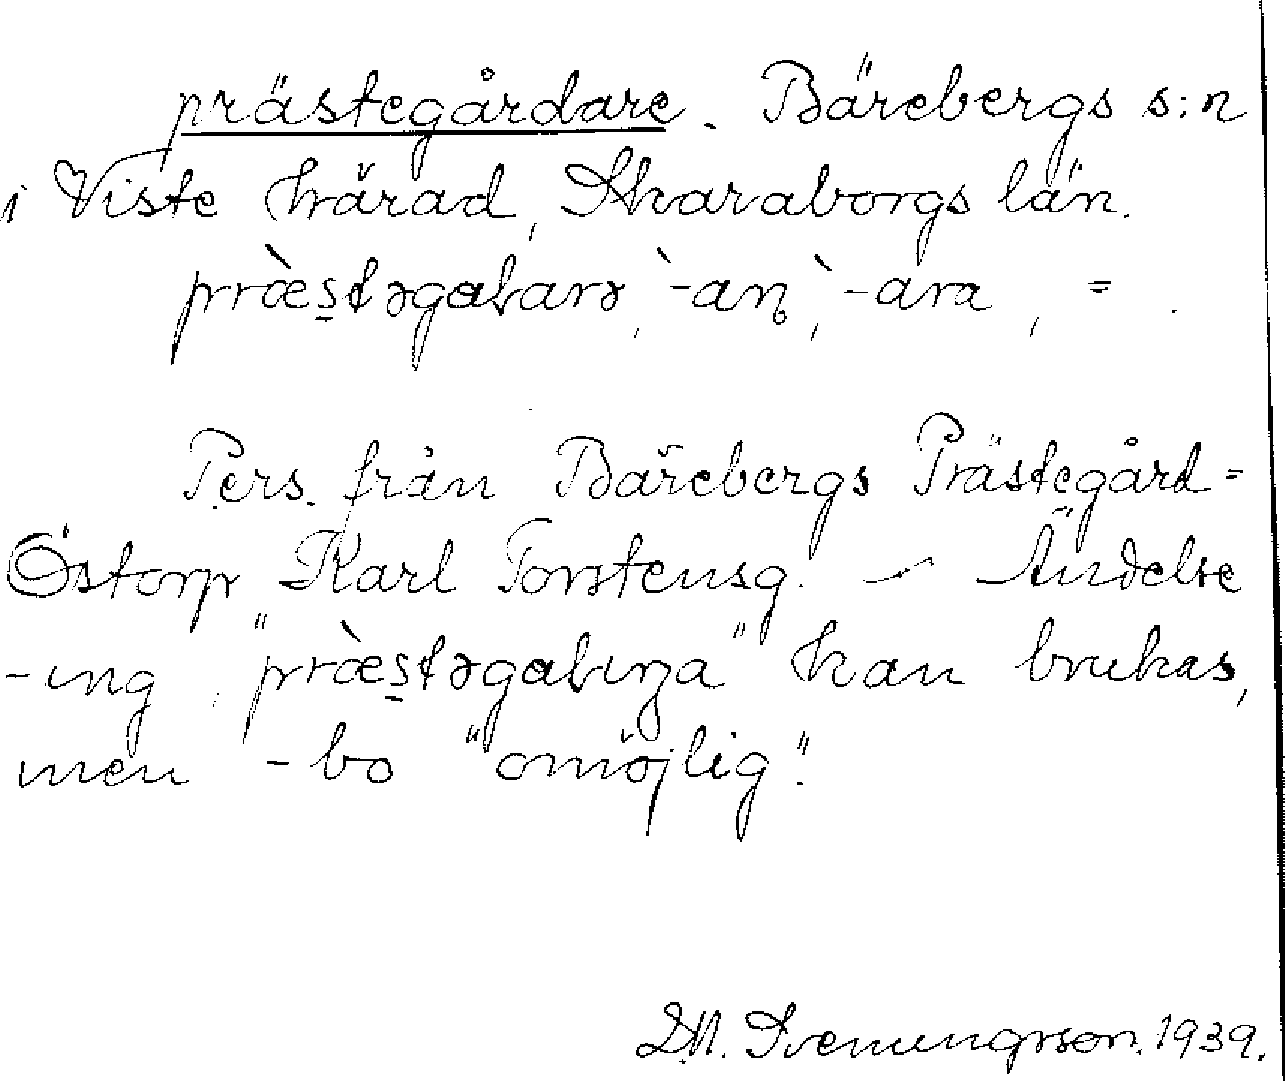 prästegårdare. Bärebergs s:n
i Viste härad, Skaraborgs län.
præ̀stəgaƚarə, -an, -ara, =.
Pers. från Bärebergs Prästegård=
Östorp Karl Torstensg. — Ändelse
-ing, "præ̀stəgaƚıŋa" kan brukas,
men -bo "omöjlig".
D.N. Svenningsson. 1939.